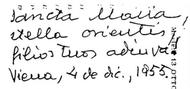 Sancta Maria,
stella orientis
filios tuos adiuva
Viena, 4 de dic., 1955.